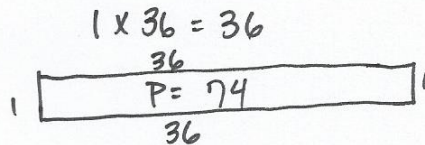 1 x 36 = 36
36
1 P = 74 1
36